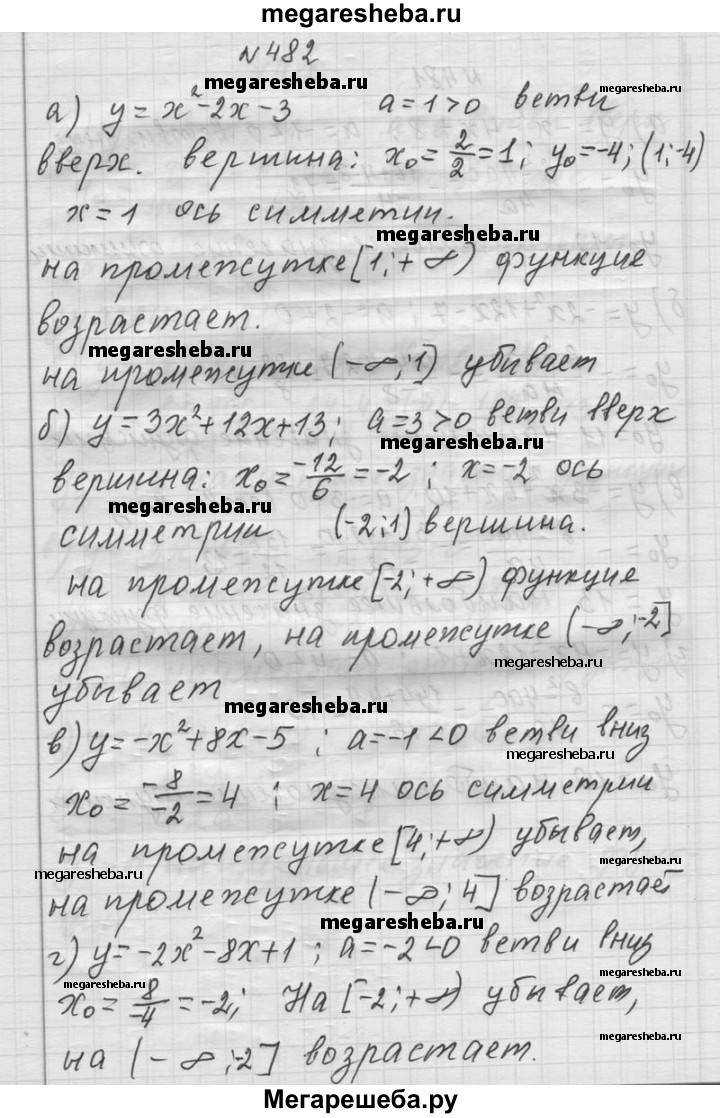 megaresheba.ru
№482
megaresheba.ru
megaresheba.ru
а) y = x²-2x-3 a=1>0 ветви
вверх. вершина: x₀= 2/2 =1; y₀=-4; (1;-4)
x=1 ось симметии.
megaresheba.ru
на промежутке [1;+∞) функция
возрастает.
megaresheba.ru
на промежутке (-∞;1] убивает
б) y=3x²+12x+13; a=3>0 ветви вверх
megaresheba.ru
вершина: x₀= -12/6 =-2 ; x=-2 ось
megaresheba.ru
симметрии (-2;1) вершина.
на промежутке [-2;+∞) функция
возрастает, на промежутке (-∞;-2]
megaresheba.ru
убывает
megaresheba.ru
в) y=-x²+8x-5 ; a=-1<0 ветви вниз
megaresheba.ru
x₀ = -8/-2 =4 ; x=4 ось симметрии
на промежутке [4;+∞) убывает,
megaresheba.ru
megaresheba.ru
на промежутке (-∞;4] возрастает
megaresheba.ru
г) y=-2x²-8x+1 ; a=-2<0 ветви вниз
megaresheba.ru
megaresheba.ru
x₀= 8/-4 =-2; На [-2;+∞) убывает,
на (-∞;-2] возрастает.
Мегарешеба.ру